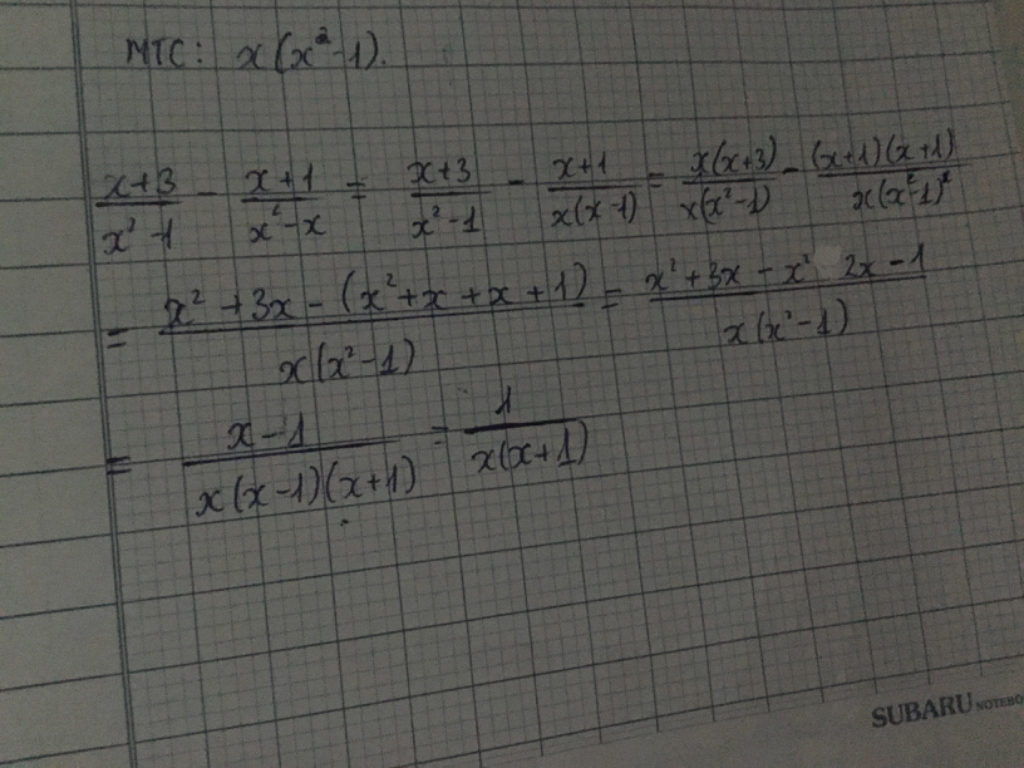 MTC: x(x²-1).
x+3/x²-1 - x+1/x²-x = x+3/x²-1 - x+1/x(x-1) = x(x+3)/x(x²-1) - (x+1)(x+1)/x(x²-1)²
= x²+3x-(x²+x+x+1)/x(x²-1) = x²+3x-x² 2x-1/x(x²-1)
= x-1/x(x-1)(x+1) = 1/x(x+1)
SUBARU NOTEBO